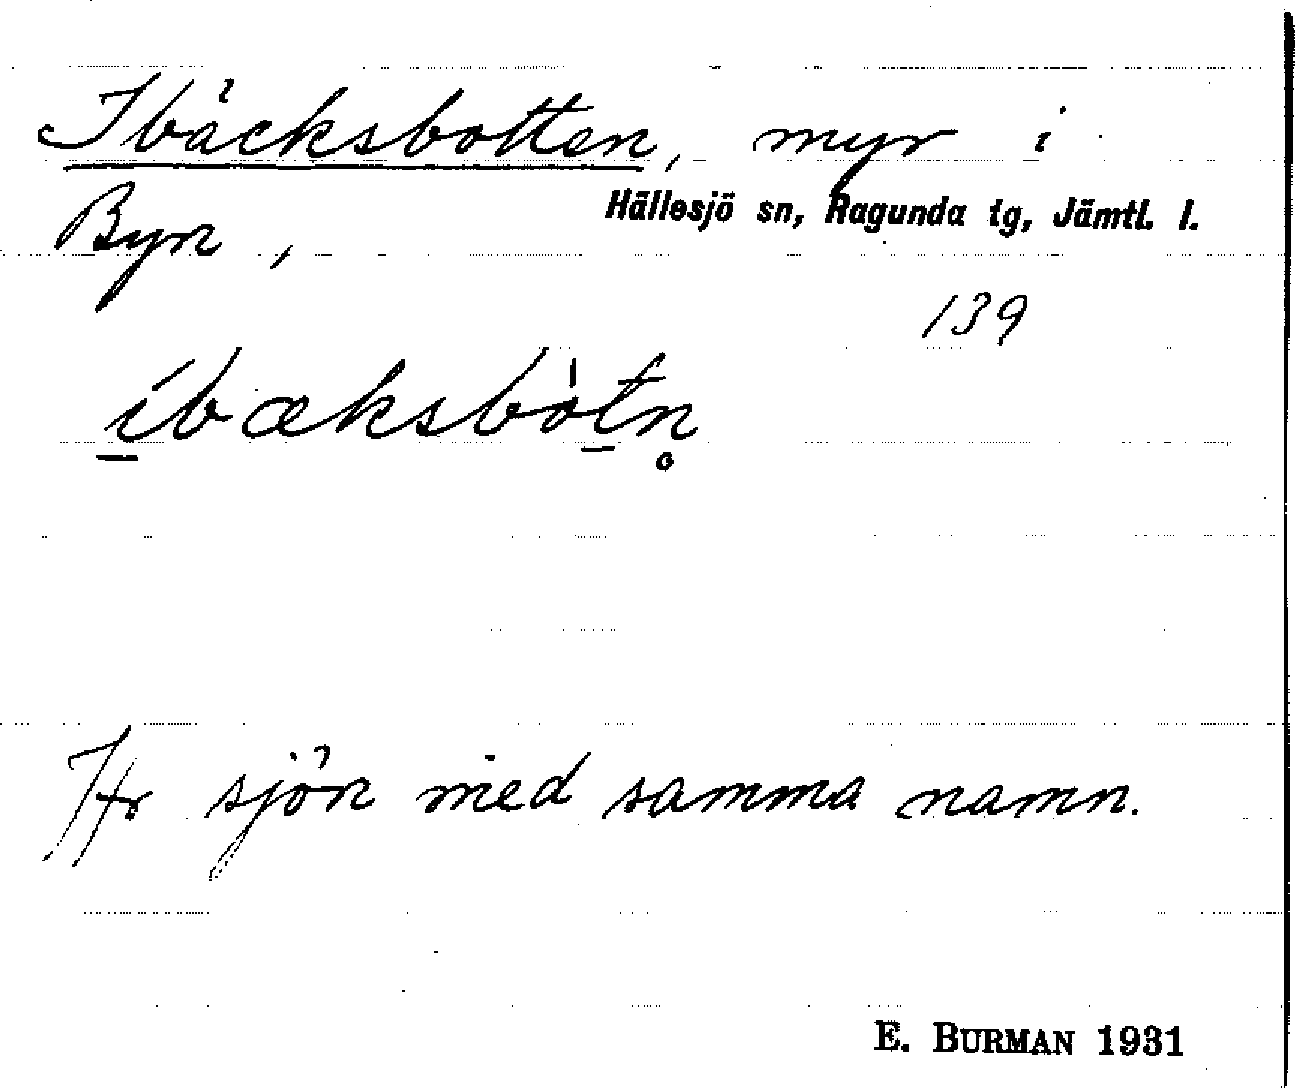 Ibäcksbotten, myr i
Byn,
Hällesjö sn, Ragunda tg, Jämtl. l.
139
i̲bæksbòt̲n̥
Jfr sjön med samma namn.
E. BURMAN 1931